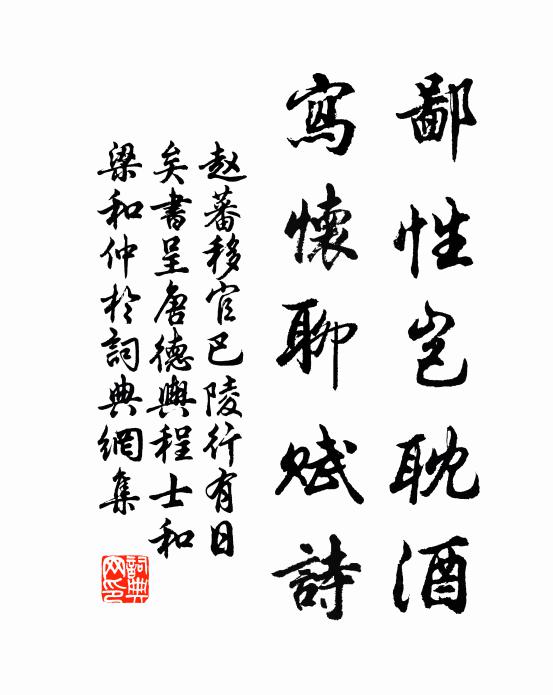 鄙性岂耽酒
寫懷聊赋詩
赵蕃移官巴陵行有日
矣書呈唐德輿程士和
梁和仲於詞典網集
詞典
网印